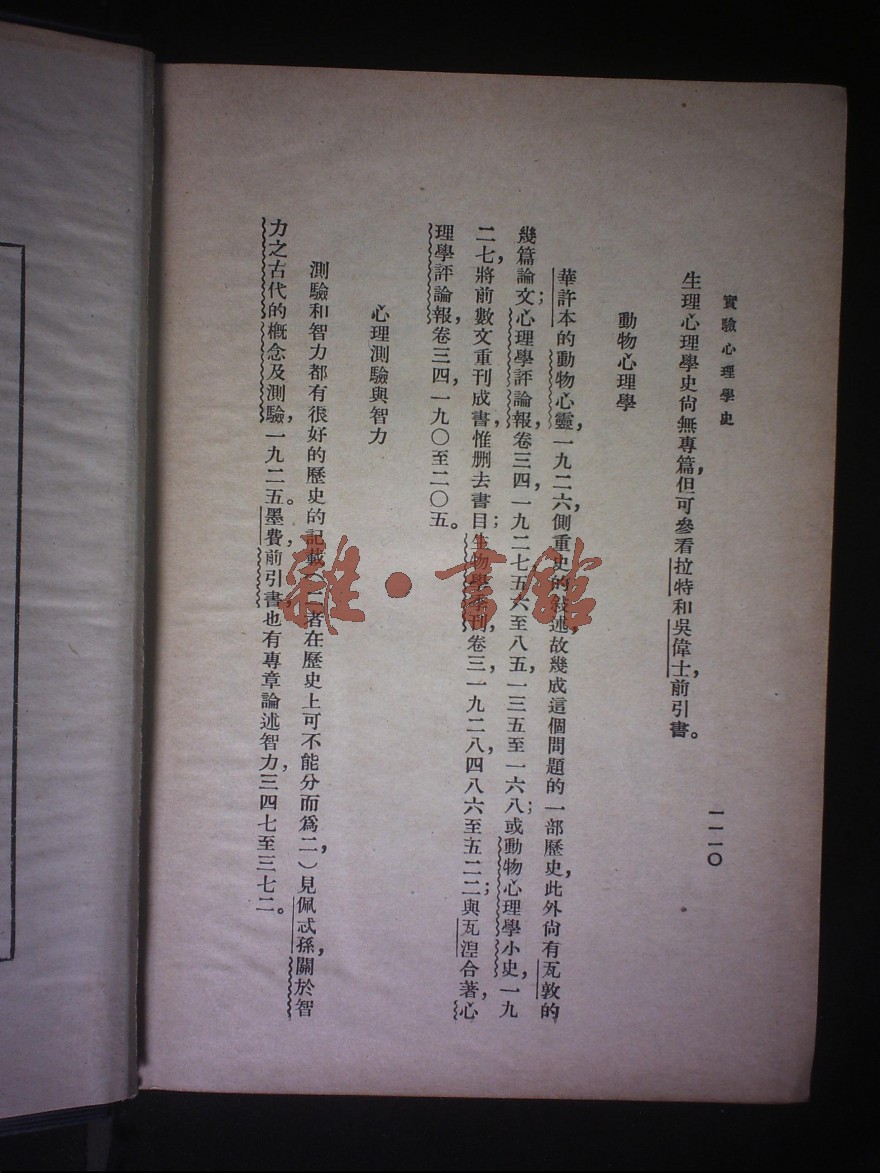 實驗心理學史
一一一〇
生理心理學史尙無專篇，但可參看拉特和吳偉士，前引書。
動物心理學
華許本的動物心靈，一九二六，側重史的敍述，故幾成這個問題的一部歷史，此外尙有瓦敦的
幾篇論文；心理學評論報，卷三四，一九二七，五六至八五，一三五至一六八；或動物心理學小史，一九
二七，將前數文重刊成書，惟删去書目；生物學季刊，卷三，一九二八，四八六至五二二；與瓦湼合著，心
理學評論報，卷三四，一九〇至二〇五。
心理測驗與智力
測驗和智力都有很好的歷史的記載（二者在歷史上可不能分而爲二，）見佩忒孫，關於智
力之古代的槪念及測驗，一九二五。墨費，前引書，也有專章論述智力，三四七至三七二。
雜·書館